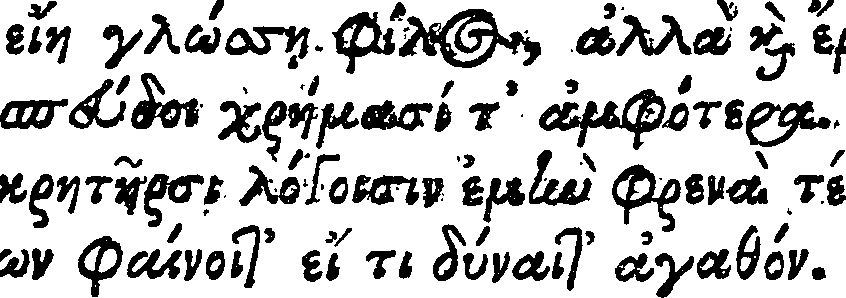 εἴη γλώσσῃ φίλος, ἀλλὰ καὶ ἔρ
σπεύδοι χρήμασί τ' ἀμφότερα.
κρητῆρσι λόγοισιν ἐμὴν φρενὰ τέ
ων φαίνοιτ' εἴ τι δύναιτ' ἀγαθόν.